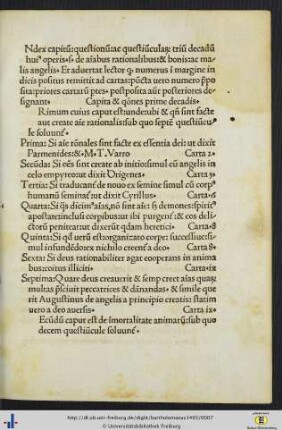 Ndex capitũ: questionũ ac questiũculaꝝ: triũ decadũ
huiꝰ operis. s. de aĩabus rationalibus: & bonis ac ma
lis angelis. Et aduertat lector ꝙ numerus ĩ margine in
dicis positus remittit ad cartas: pũcta uero numero p̃po
sita: priores cartarũ p̃tes. postposita aũt posteriores de
signant. Capita & q̃ones prime decadis.
Rimum cuius caput est: unde: ubi & qñ sint facte
aut create aĩe rationalis: sub quo septẽ questiũcu
le soluunt̃.
Prima: Si aĩe rõnales sint facte ex essentia dei: ut dixit
Parmenides: & M. T. Varro Carta 2.
Secũda: Si oẽs sint create ab initio: simul cũ angelis in
celo empyreo: ut dixit Origenes. Carta
Tertia: Si traducant̃ de nouo ex semine simul cũ corpꝰ
humanũ seminat̃: ut dixit Cyrillus. Carta
Quarta: Si dicimꝰ aĩas, nõ sint aĩe: sed demones: spiritꝰ
apostate: inclusi corporibus: ut ibi purgent̃: & eos deli
ctorũ peniteat: ut dixerũt qdam heretici. Carta
Quinta: Si organizato corpe: successiue: si
mul infundẽdo: ex nichilo creent̃ a deo. Carta
Sexta: Si deus rationabiliter agat cooperans in anima
bus: coitus illiciti. Carta.ix
Septima: Quare deus creauerit & semp creet aĩas quas
multas p̃sciuit peccatrices & dãnandas. & simile que
rit Augustinus de angelis a principio creatis: statim
uero a deo auersis. Carta ix.
Ecũdũ caput est de ĩmortalitate animarũ: sub quo
decem questiũcule soluunt̃.
http://dl.ub.uni-freiburg.de/diglit/bartholomaeus1495/0007
© Universitätsbibliothek Freiburg